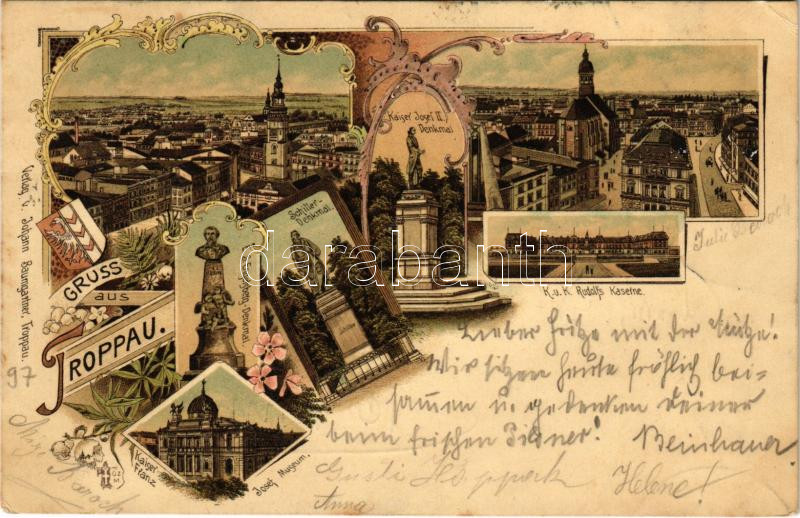 Kaiser Josef II.
Denkmal
Schiller-
Denkmal.
Denkmal
GRUSS
aus
TROPPAU.
K. u. K. Rudolfs Kaserne.
Kaiser
Franz
Josef Museum.
Verlag v. Johann Baumgartner, Troppau.
darabanth
97
Julie
Lieber Fritze mit der Mütze!
Wir sitzen heute fröhlich bei-
sammen u. gedenken deiner
beim frischen Pilsner! Beinhauer
Gusti
Helene!
Anna